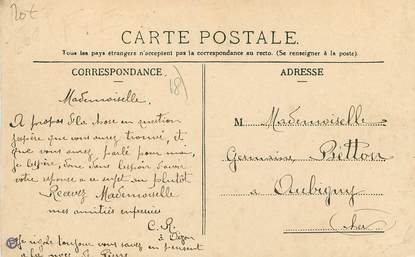 CARTE POSTALE.
Tous les pays étrangers n'acceptent pas la correspondance au recto. (Se renseigner à la poste).
CORRESPONDANCE
ADRESSE
Mademoiselle.
A propos en question
j'espère que vous aurez trouvé, et
que vous aurez parlé pour moi,
je l'espère, dans l'espoir d'avoir
votre réponse à ce sujet au plutôt
Recevez Mademoiselle
mes amitiés empressées
C. R.
à Dizon
Je rigole toujours vous savez en pensant
à la noce
M Mademoiselle
Germaine
à Aubigny
Cher